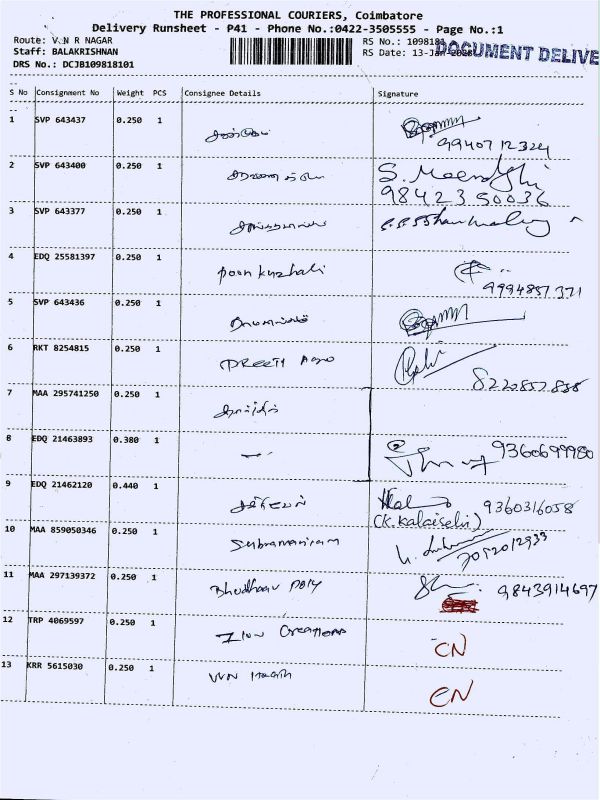 THE PROFESSIONAL COURIERS, Coimbatore
Delivery Runsheet - P41 - Phone No.:0422-3505555 - Page No.:1
Route: V N R NAGAR
RS No.: 1098181
Staff: BALAKRISHNAN
RS Date: 13-Jan
DOCUMENT DELIVE
DRS No.: DCJB109818101
S No Consignment No Weight PCS Consignee Details Signature
1 SVP 643437 0.250 1
9940712324
2 SVP 643400 0.250 1
9842350036
3 SVP 643377 0.250 1
4 EDQ 25581397 0.250 1
poon kuzhali
9994857371
5 SVP 643436 0.250 1
6 RKT 8254815 0.250 1
PREETI Agro
8220857858
7 MAA 295741250 0.250 1
8 EDQ 21463893 0.380 1
9360699980
9 EDQ 21462120 0.440 1
9360316058
(K.Kalaiselvi)
10 MAA 859050346 0.250 1
Subramaniram
7052012933
11 MAA 297139372 0.250 1
Poly
9843914697
12 TRP 4069597 0.250 1
Zion Creations
CN
13 KRR 5615030 0.250 1
VVN
CN